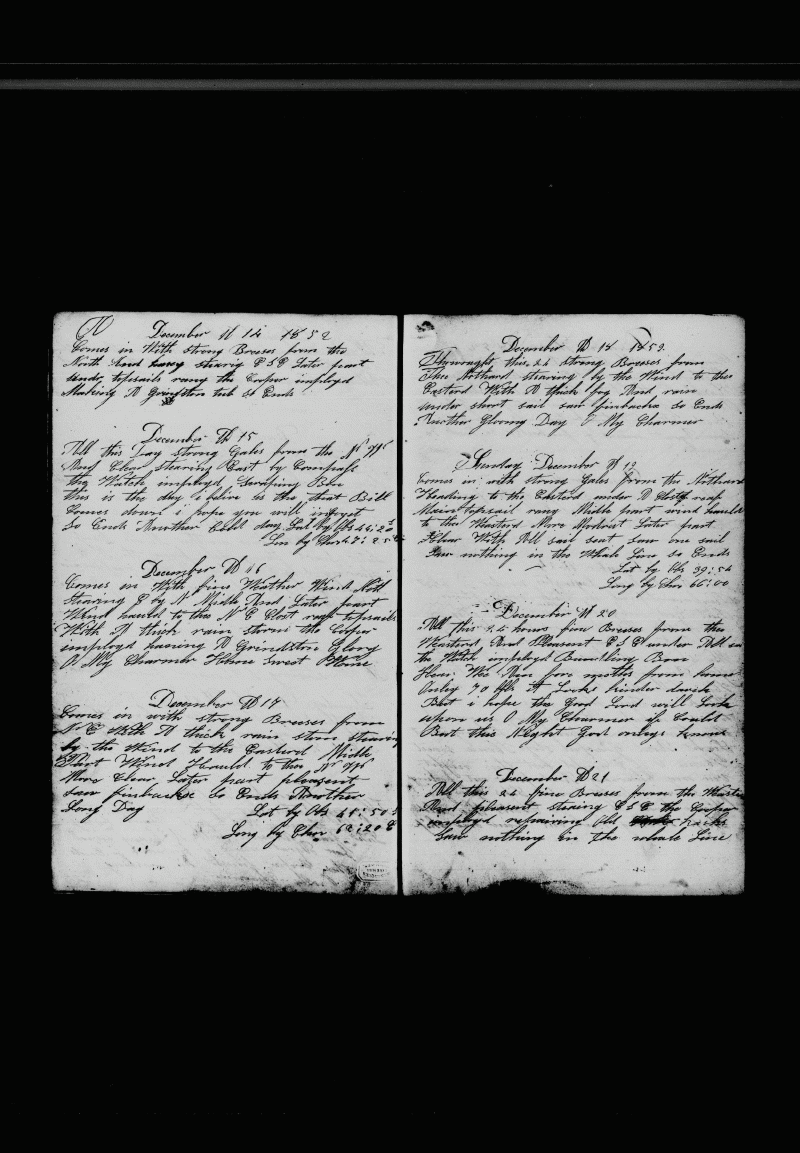 December 14 1852
Comes in With strong Breeses from the
North And hazy stearing E S E Later part
under topsails rany the Cooper imployd
Making A Grinston tub So Ends
December 15
All this Day strong Gales from the
And Clear Stearing East by Compass
the Watch imployd Scraping Bone
this is the day i belive is the that Bill
Comes down i hope you will injoyet
So Ends Another day Lat by Obs 44:2
Lon by Chor 47:25
December 16
Comes in With fine Weather Wind
Stearing E by N Midle And Later part
Wind hauld to the N E Clost reaf topsails
With A thick rain storm the Cooper
imployd haning A Grindston Glory
O My Charmer Home Sweet Home
December 17
Comes in with strong Breeses from
N E With A thick rain storm stearing
by the Wind to the Easterd Midle
Part Wind Hauld to the
More Clear Later part pleasent
saw finbacks So Ends Another
Long Day
Lat by Obs 41:50
Long by Chor 62:20 E
December 18 1852
Throught this 24 strong Breeses from
The Nothard stearing by the Wind to the
Easterd With A thick fog And rain
under short sail saw finbacks So Ends
Another Gloomy Day O My Charmer
Sunday December 19
Comes in with strong Gales from the Nothard
Heading to the Easterd under A Clost reaf
Main topsail rany Midle part wind hauld
to the Westerd More Moderat Later part
Clear With All sail sout saw one sail
Saw nothing in the Whale Line so Ends
Lat by Obs 39:54
Long by Chor 66:00
December 20
All this 24 hours fine Breeses from the
Westerd And Pleasent E S E under All
the Watch imployd Bundling Bone
Hear We Are fore moths from home
Onley 70 bbls it Looks kinder dark
But i hope the Good Lord will Look
upon us O My Charmer if Could
But this Night God onley knows
December 21
All this 24 fine Breses from the
And pleasent stearing E S E the Cooper
imployd repairing Old
Saw nothing in the whale Line